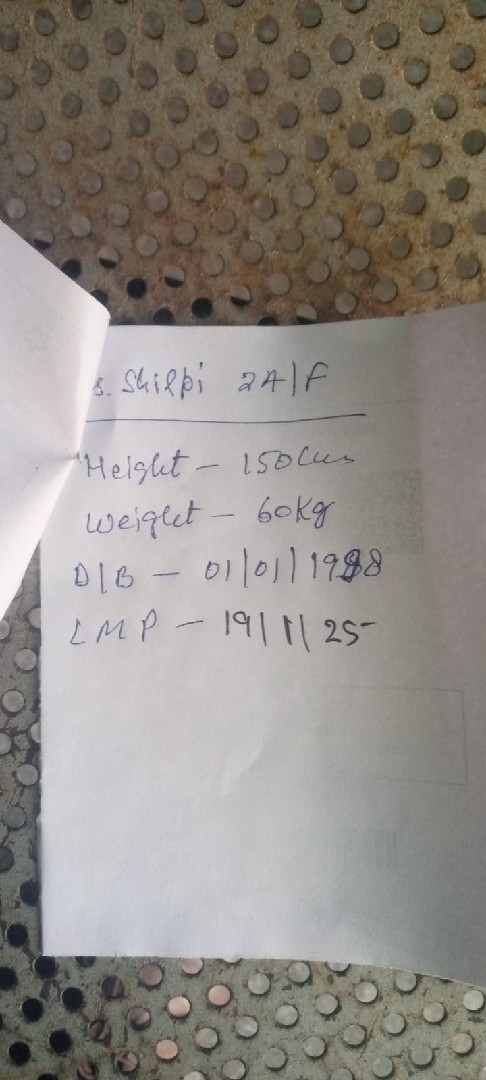 s. Shilpi 2A|F
Height - 150 Cms
Weight - 60Kg
D|B - 01|01|1988
LMP - 19|1|25